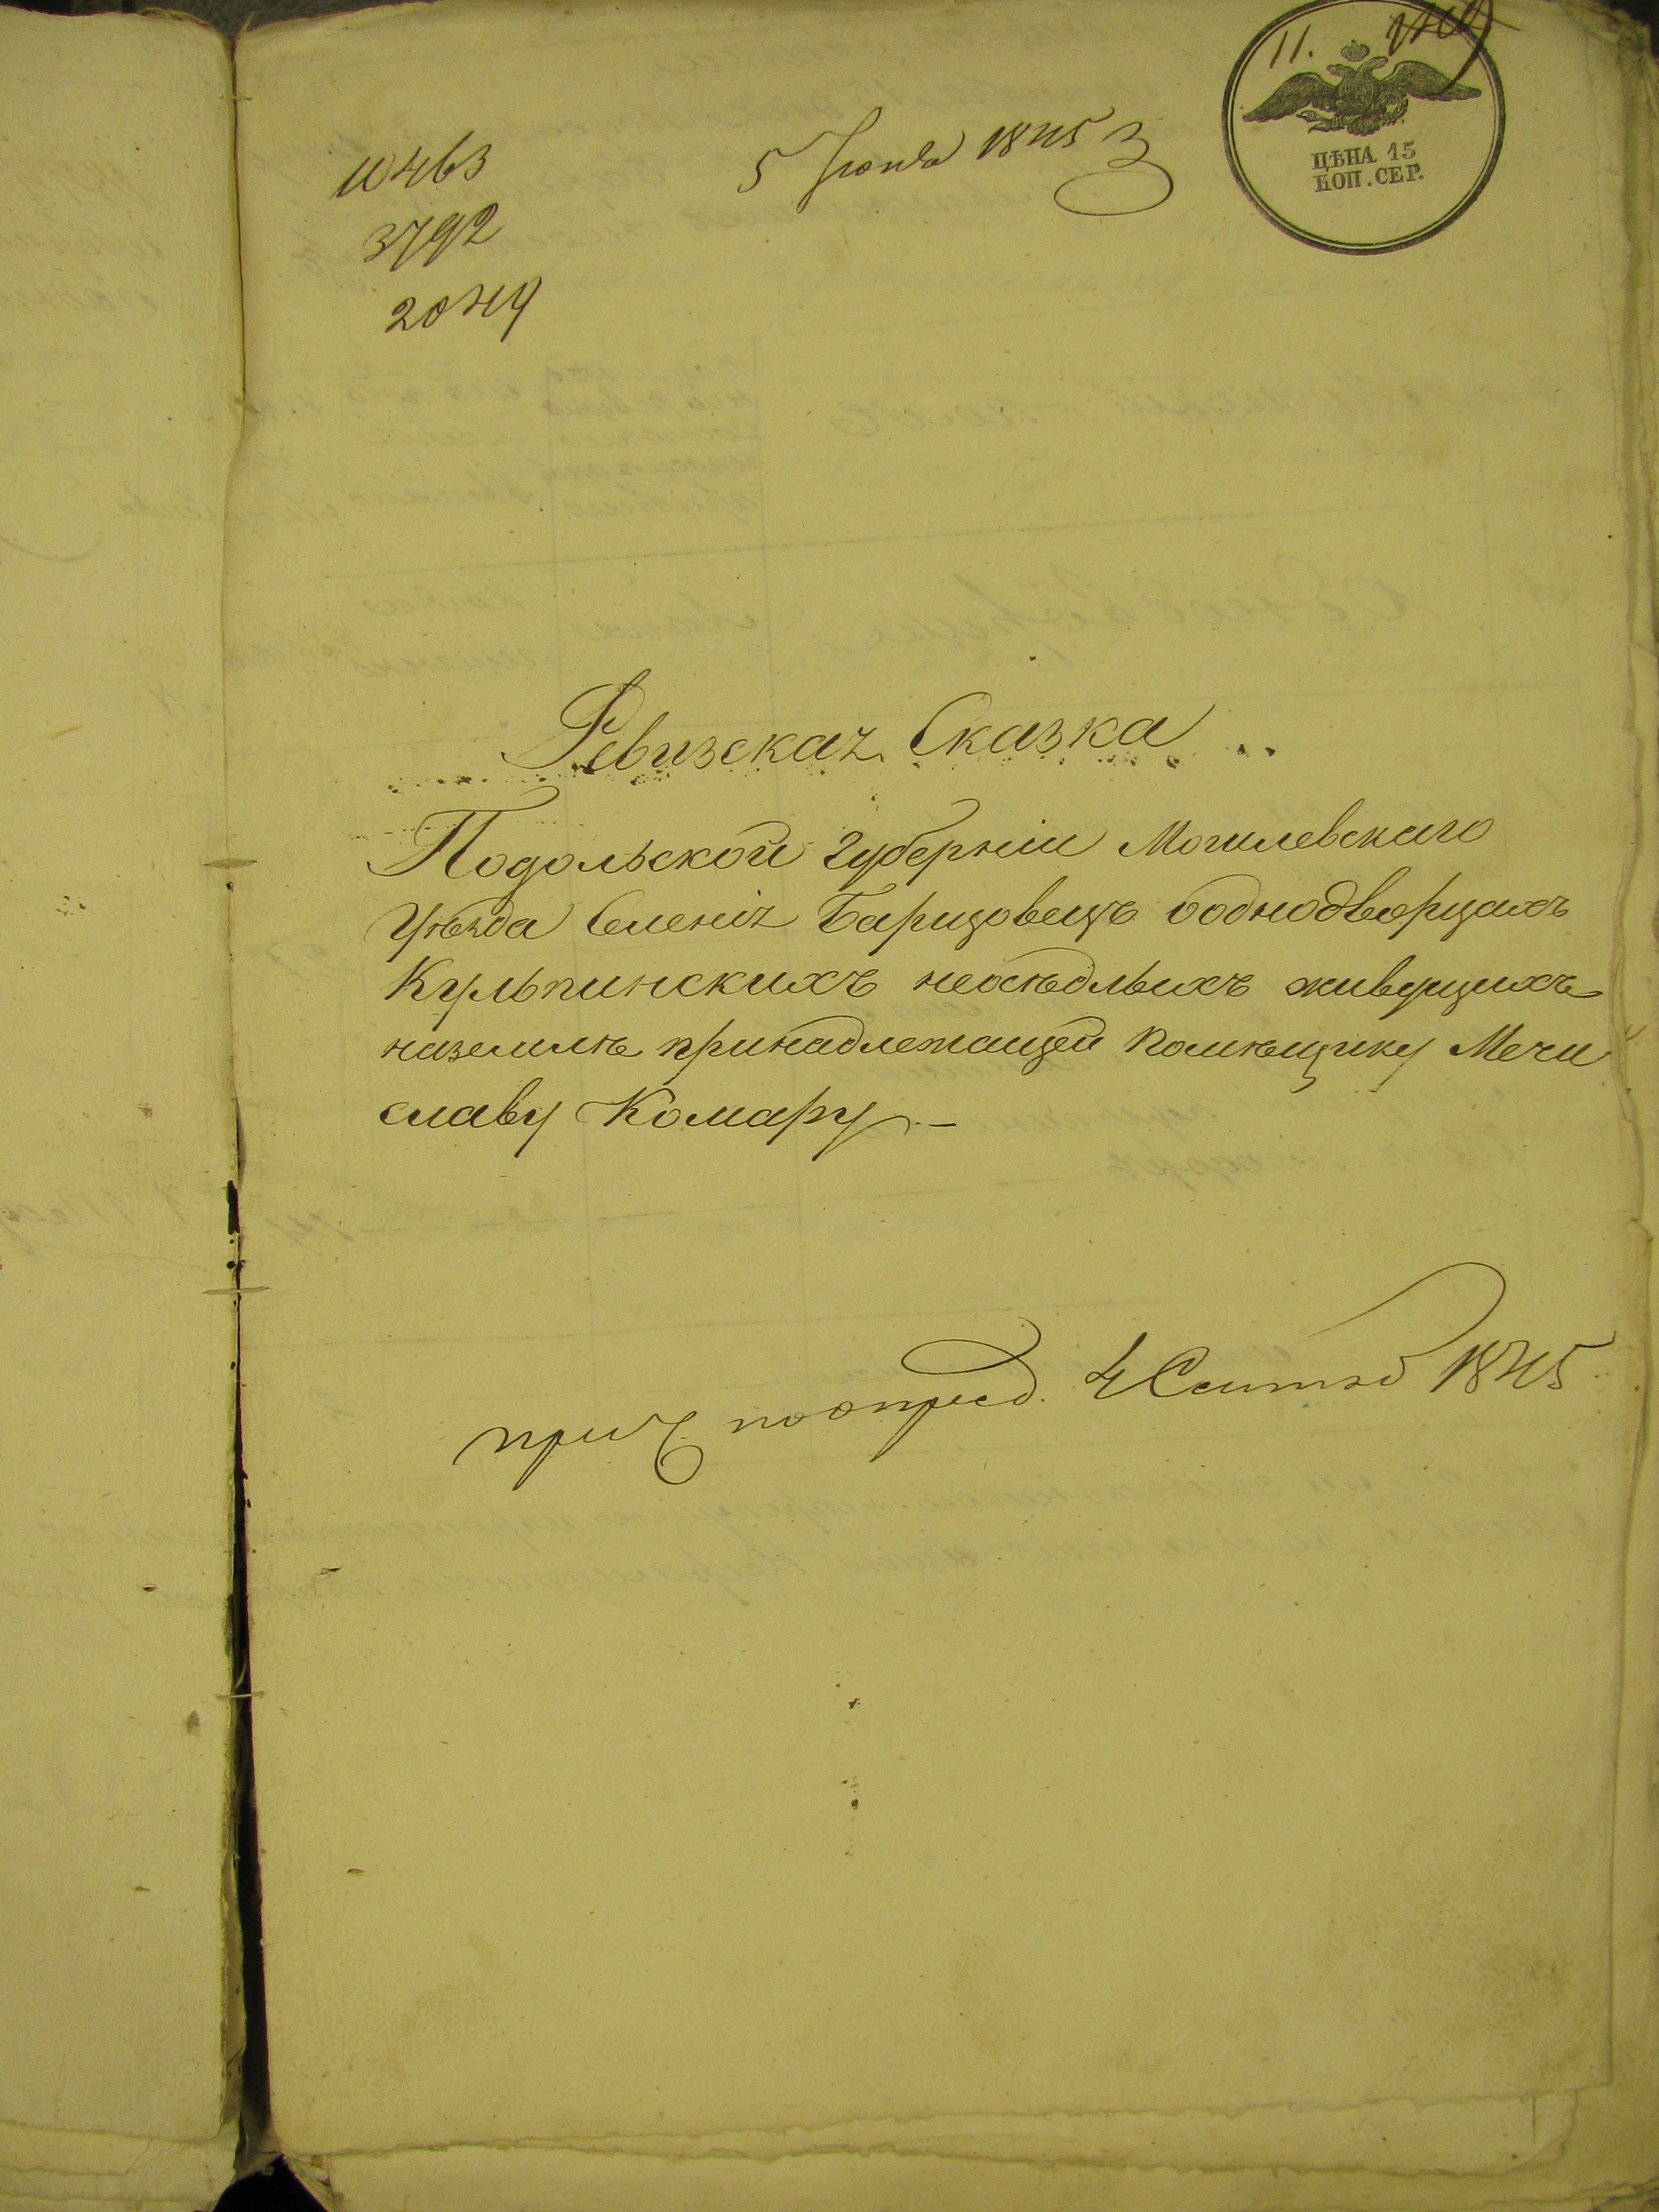 11.
ЦѢНА 15
КОП. СЕР.
5 Іюня 1845
3792
Ревизская Сказка
Подольской Губерніи Могилевскаго
Уѣзда Селенія Барицовецъ ободнодворцахъ
Кульпинскихъ неосѣдлыхъ живущихъ
наземлѣ принадлежащей Помѣщику Мечи
славу Комару.–
4 Сентяб 1845